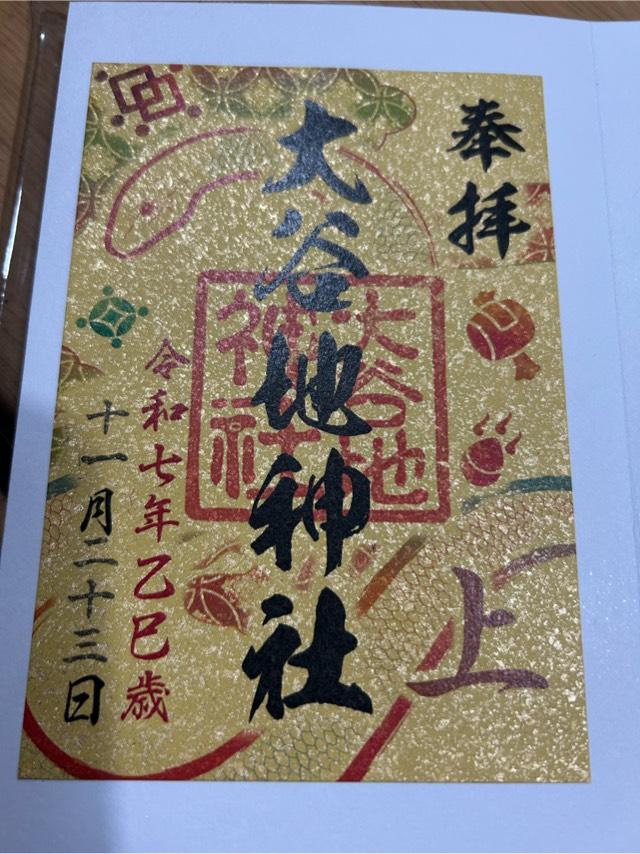 奉拝
上
大谷地神社
大谷地
神社
令和七年乙巳歳
十一月二十三日